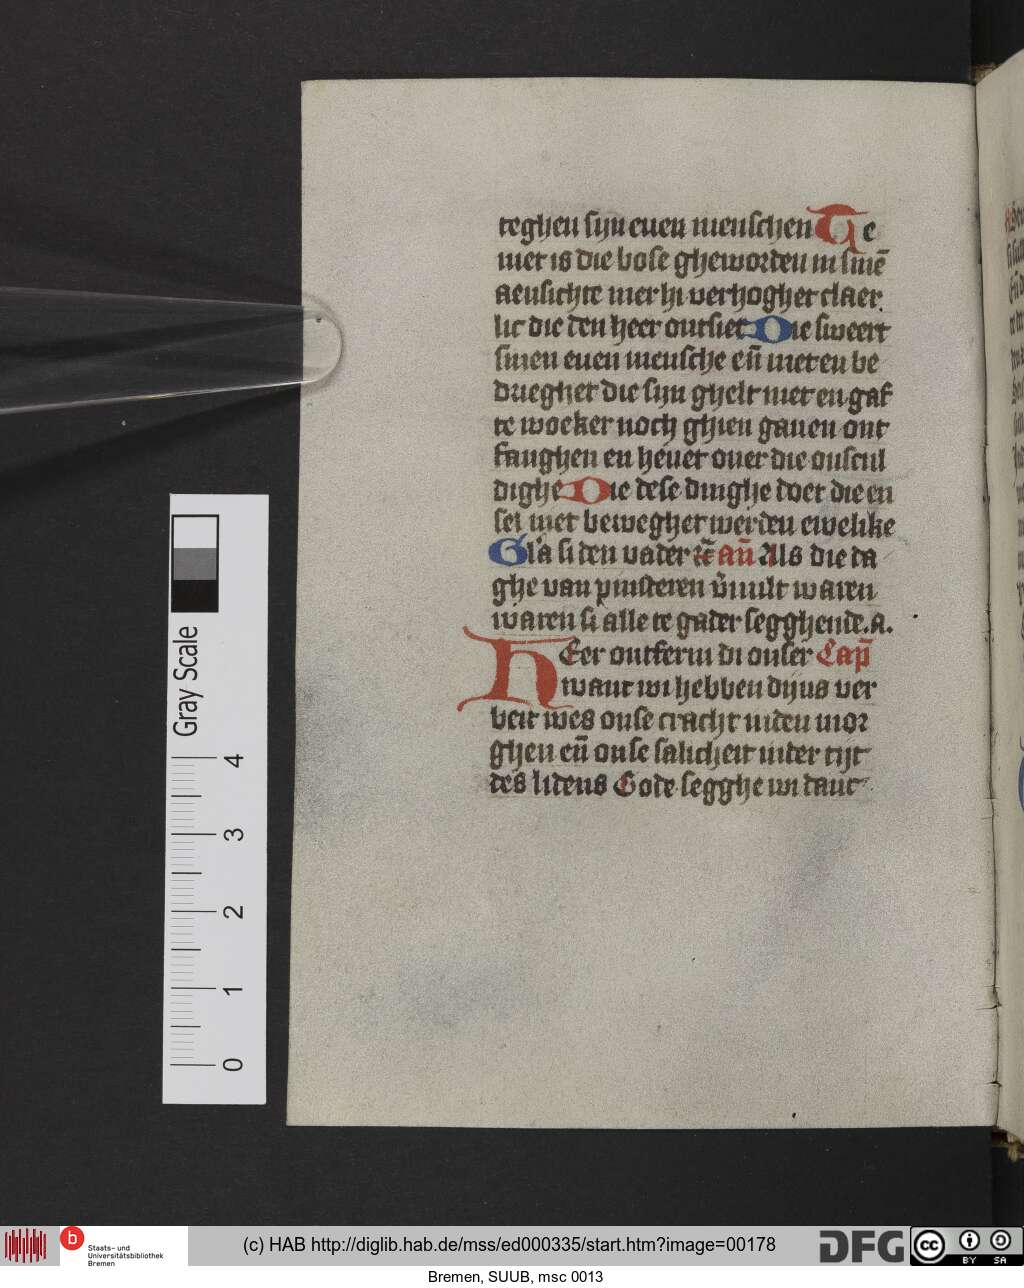 teghen sijn euen menschen Te
niet is die bose gheworden in sinē
aensichte mer hi verhoghet claer
lic die den heer ontsiet Die sweert
sinen euen mensche eñ niet en be
drieghet die sijn ghelt niet en gaf
te woeker noch ghien gauen ont
fanghen en heuet ouer die onscul
dighe Die dese dinghe doet die en
sel niet beweghet werden ewelike
Gl'a si den vader añ Als die da
ghe van pinsteren v̄uult waren
waren si alle te gader segghende .a.
HEer ontferm di onser Cap̄
want wi hebben dijns ver
beit wes onse cracht inden mor
ghen eñ onse salicheit inder tijt
des lidens Gode segghe wi danc
Gray Scale
0 1 2 3 4
b
Staats- und
Universitätsbibliothek
Bremen
(c) HAB http://diglib.hab.de/mss/ed000335/start.htm?image=00178
DFG
cc BY SA
Bremen, SUUB, msc 0013